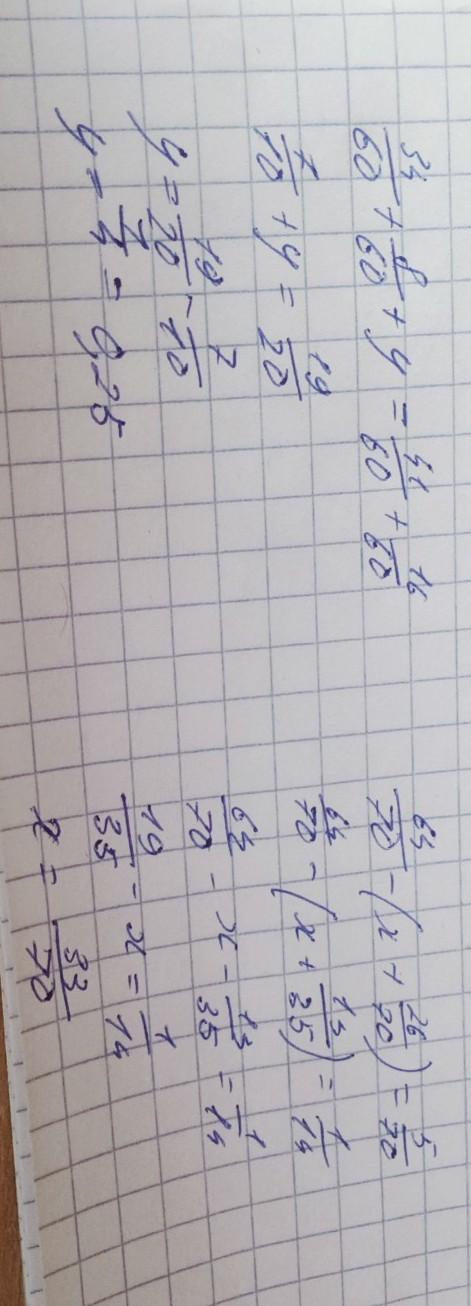 34/60 + 8/60 + y = 41/60 + 16/60
7/10 + y = 19/20
y = 19/20 - 7/10
y = 1/4 = 0,25
64/70 - (x + 26/70) = 5/70
64/70 - (x + 13/35) = 1/14
64/70 - x - 13/35 = 1/14
19/35 - x = 1/14
x = 33/70